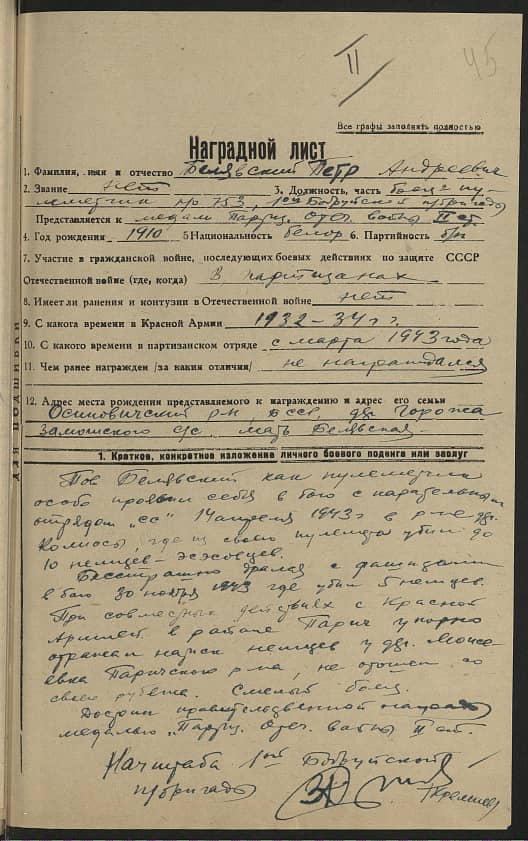 II
45
Все графы заполнять полностью
Наградной лист
1. Фамилия, имя и отчество Белявский Петр Андреевич
2. Звание нет 3. Должность, часть боец пу-
леметчик п/о 753, 1ой Бобруйской п/бригады
Представляется к медали Партиз. Отеч. войны II ст.
4. Год рождения 1910 5 Национальность белор 6. Партийность б/п
7. Участие в гражданской войне, последующих боевых действиях по защите СССР
Отечественной войне (где, когда) В партизанах
8. Имеет ли ранения и контузии в Отечественной войне нет
9. С какога времени в Красной Армии 1932-34 г г.
10. С какого времени в партизанском отряде с марта 1943 года
11. Чем ранее награжден /за какия отличия/ не награждался
12. Адрес места рождения представляемого к награждению и адрес его семьи
Осиповичский р-н, БССР, д. Горожа
Замошского с/с. мать Белявская
для подшивки
1. Краткое, конкретное изложение личного боевого подвига или заслуг
Тов Белявский как пулеметчик
особо проявил себя в бою с карательным
отрядом "СС" 14 апреля 1943 г в р-не д.
где из своего пулемета убил до
10 немцев-эсэсовцев.
Бесстрашно дрался с фашистами
в бою 30 ноября 1943 где убил 5 немцев.
При совместных действиях с Красной
Армией в районе Парич упорно
отражал натиск немцев у д. Моисе-
евка Паричского р-на, не отошел со
своего рубежа. Смелый боец.
Достоин правительственной награды
медалью "Партиз. Отеч. войны II ст.
Начштаба 1ой Бобруйской
п/бригады